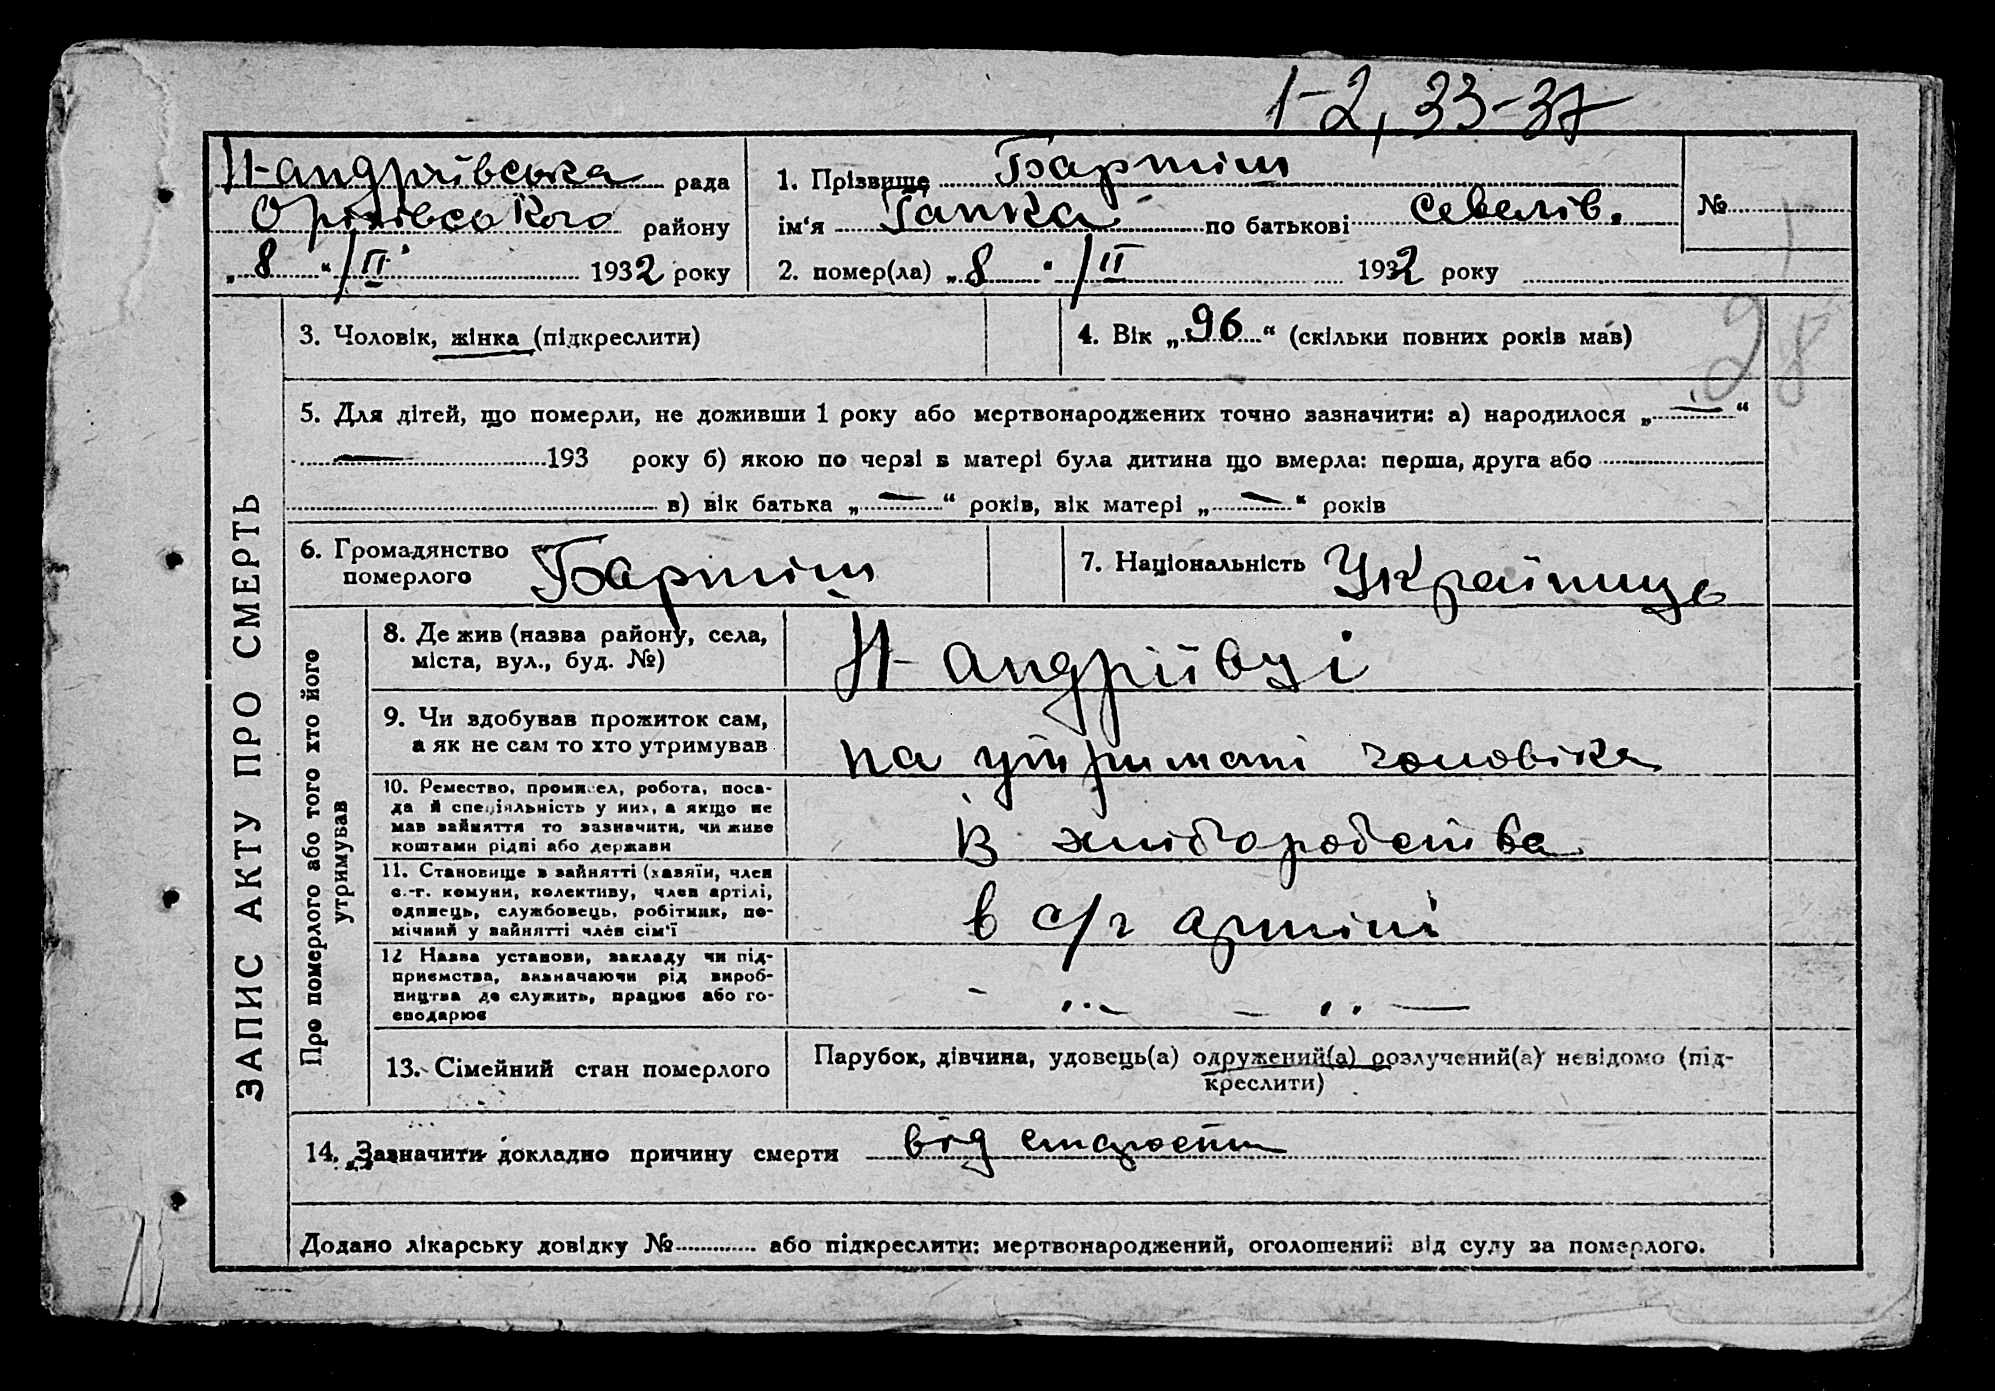 1-2, 33-37
Н-андріївська рада
Оріхівського району
„8“/II 1932 року
1. Прізвище Бартіш
ім'я Гапка по батькові Савелів.
2. помер(ла) „8“/II 1932 року
№
28
ЗАПИС АКТУ ПРО СМЕРТЬ
3. Чоловік, жінка (підкреслити)
4. Вік „96“ (скільки повних років мав)
5. Для дітей, що померли, не доживши 1 року або мертвонароджених точно зазначити: а) народилося „—“
— 193 року б) якою по черзі в матері була дитина що вмерла: перша, друга або
в) вік батька „—“ років, вік матері „—“ років
6. Громадянство
померлого Бартіш
7. Національність Українць
Про померлого або того хто його
утримував
8. Де жив (назва району, села,
міста, вул., буд. №)
Н-андріївці
9. Чи здобував прожиток сам,
а як не сам то хто утримував
на утримані чоловіка
10. Ремество, промисел, робота, поса-
да й спеціяльність у них, а якщо не
мав зайняття то зазначити, чи живе
коштами рідні або держави
В хліборобства
11. Становище в зайнятті (хазяїн, член
с.-г. комуни, колективу, член артілі,
одинець, службовець, робітник, по-
мічний у зайнятті член сім'ї
в с/г артілі
12 Назва установи, закладу чи під-
приємства, зазначаючи рід вироб-
ництва де служить, працює або го-
сподарює
- ,,- - ,, -
13. Сімейний стан померлого
Парубок, дівчина, удовець(а) одружений(а) розлучений(а) невідомо (під-
креслити)
14. Зазначити докладно причину смерти від старости
Додано лікарську довідку № або підкреслити: мертвонароджений, оголошений від суду за померлого.